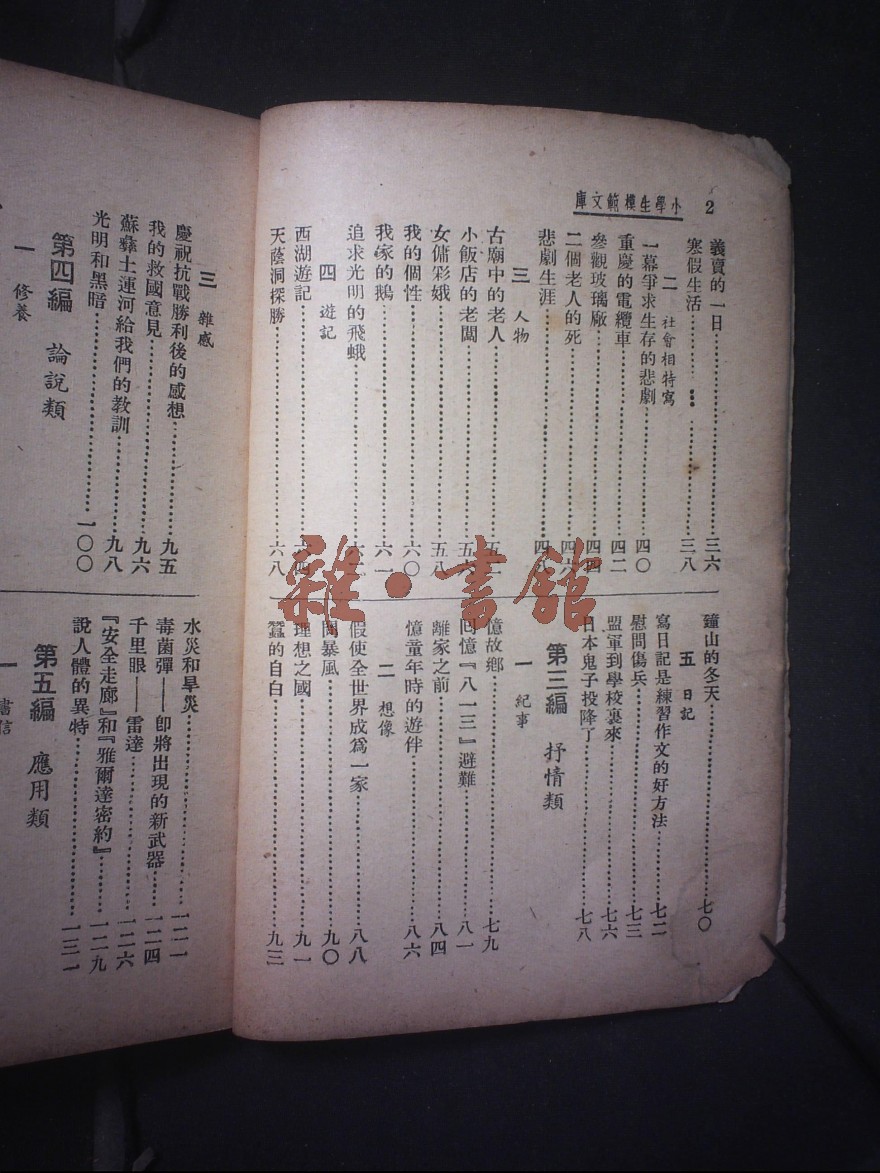 2
小學生模範文庫
義賣的一日……三六
寒假生活……三八
二 社會相特寫
一幕爭求生存的悲劇……四〇
重慶的電纜車……四二
參觀玻璃廠……四四
二個老人的死……四六
悲劇生涯……四八
三 人物
古廟中的老人……五二
小飯店的老闆……五六
女傭彩娥……五八
我的個性……六〇
我家的鵝……六一
追求光明的飛蛾……六二
四 遊記
西湖遊記……六四
天蔭洞探勝……六八
鐘山的冬天……七〇
五 日記
寫日記是練習作文的好方法……七二
慰問傷兵……七三
盟軍到學校裏來……七六
日本鬼子投降了……七八
第三編 抒情類
一 紀事
憶故鄉……七九
回憶『八一三』避難……八一
離家之前……八四
憶童年時的遊伴……八六
二 想像
假使全世界成爲一家……八八
鬧暴風……九〇
理想之國……九一
蠶的自白……九三
三 雜感
慶祝抗戰勝利後的感想……九五
我的救國意見……九六
蘇彝士運河給我們的教訓……九八
光明和黑暗……一〇〇
第四編 論說類
一 修養
水災和旱災……一二一
毒菌彈——卽將出現的新武器……一二四
千里眼——雷達……一二六
『安全走廊』和『雅爾達密約』……一二九
說人體的異特……一三一
第五編 應用類
一 書信
雜·書館